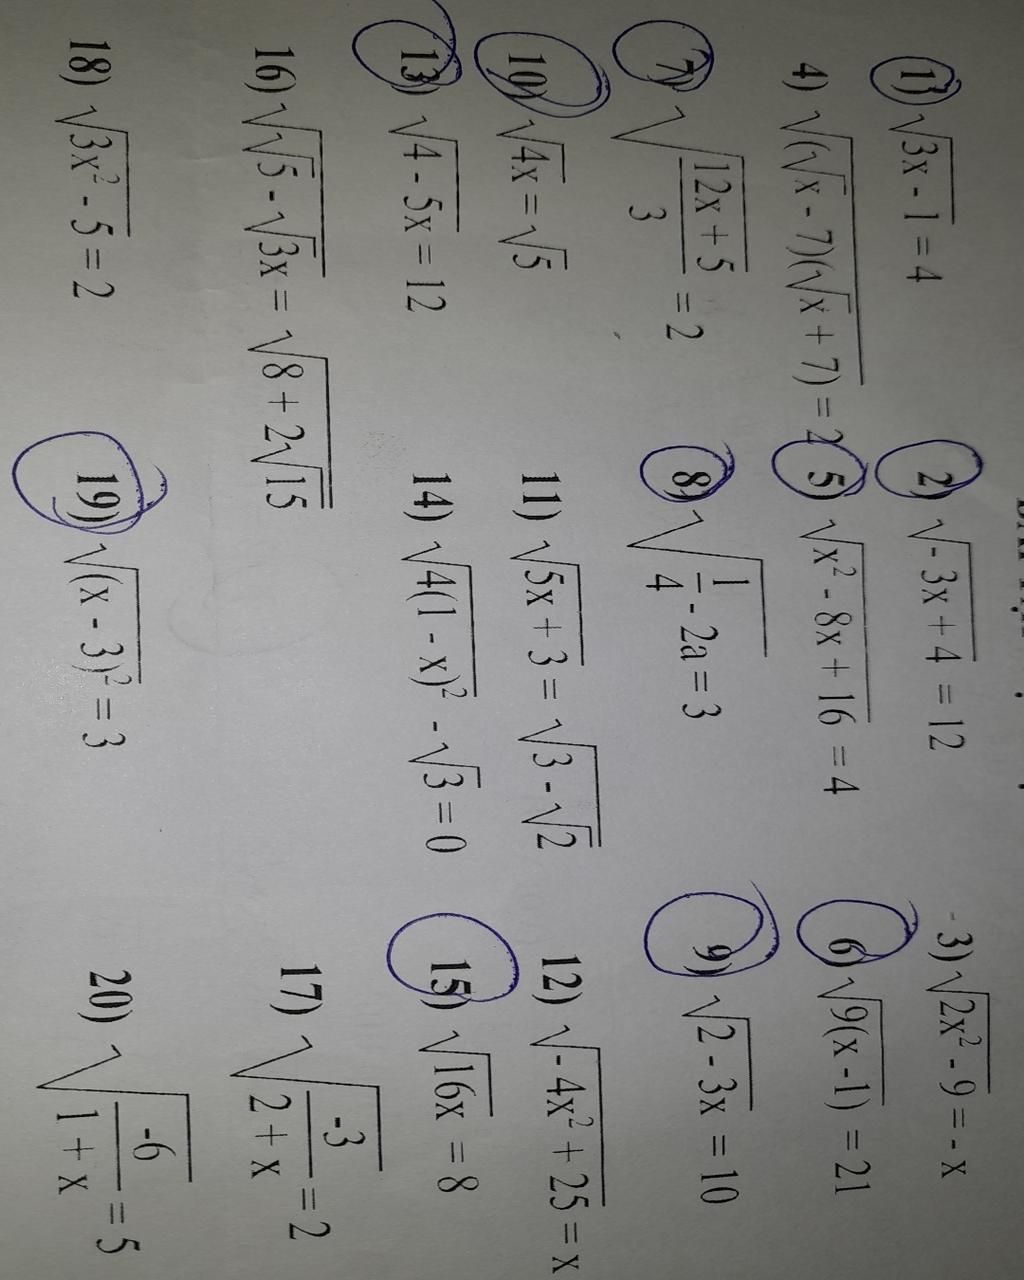 1) √(3x - 1) = 4 2) √(- 3x + 4) = 12 3) √(2x² - 9) = - x
4) √((√x - 7)(√x + 7)) = 2 5) √(x² - 8x + 16) = 4 6) √(9(x -1)) = 21
7) √((12x + 5)/3) = 2 8) √(1/4 - 2a) = 3 9) √(2 - 3x) = 10
10) √(4x) = √5 11) √(5x + 3) = √(3 - √2) 12) √(- 4x² + 25) = x
13) √(4 - 5x) = 12 14) √(4(1 - x)²) - √3 = 0 15) √(16x) = 8
16) √(√5 - √3x) = √(8 + 2√15) 17) √(-3/(2 + x)) = 2
18) √(3x² - 5) = 2 19) √((x - 3)²) = 3 20) √(-6/(1 + x)) = 5